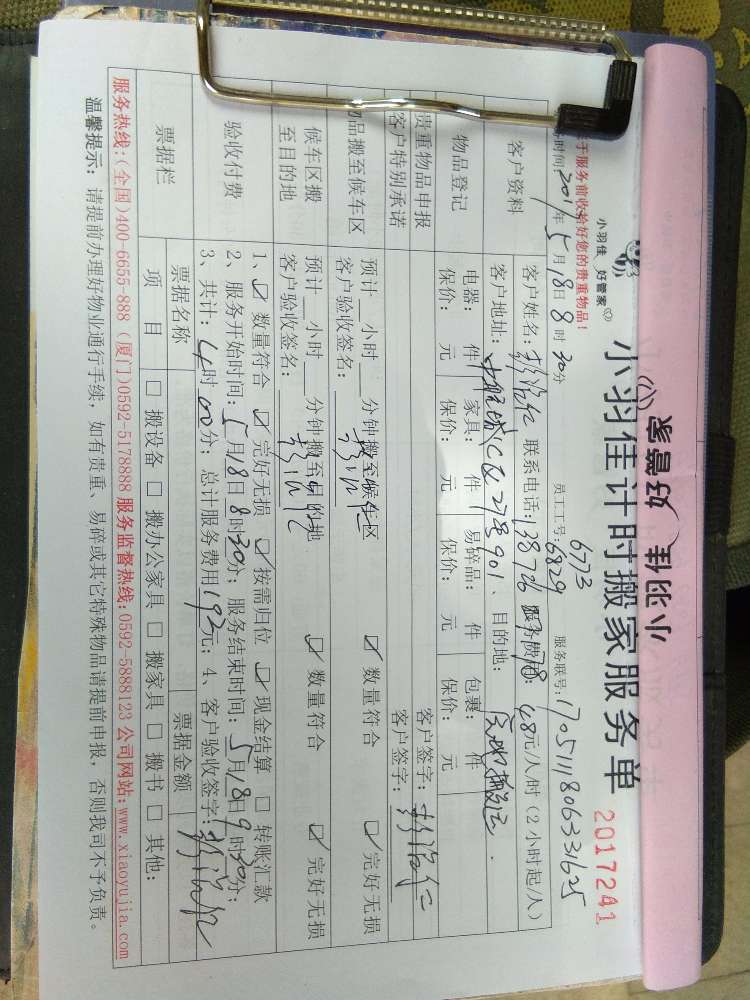 小羽佳 好管家
小羽佳 好管家
小羽佳计时搬家服务单
2017241
于服务前收拾好您的贵重物品!
6773
时间:2017年5月18日8时30分 员工工号:6829 服务联号:170511180633 1625
客户资料
客户姓名: 联系电话:138726 服务费用:48元/人/时(2小时起/人)
客户地址: C区27号901、目的地:
物品登记
电器: 件 家具: 件 易碎品: 件 包裹: 件
保价: 元 保价: 元 保价: 元 保价: 元
贵重物品申报
客户签字:
客户特别承诺
客户签字:
物品搬至候车区
预计__小时__分钟搬至候车区 ☑ 数量符合 ☑ 完好无损
客户验收签名:
候车区搬至目的地
预计__小时__分钟搬至目的地 ☑ 数量符合 ☑ 完好无损
客户验收签名:
验收付费
1、☑ 数量符合 ☑ 完好无损 ☑ 按需归位 ☑ 现金结算 □ 转账汇款
2、服务开始时间:5月18日8时30分;服务结束时间:5月18日9时30分;
3、共计:4时00分;总计服务费用192元;4、客户验收签字:
票据栏
票据名称 票据金额
项 目 □ 搬设备 □ 搬办公家具 □ 搬家具 □ 搬书 □ 其他:
服务热线:(全国)400-6655-888 (厦门)0592-5178888 服务监督热线:0592-5888123 公司网站:www.xiaoyujia.com
温馨提示:请提前办理好物业通行手续,如有贵重、易碎或其它特殊物品请提前申报,否则我司不予负责。